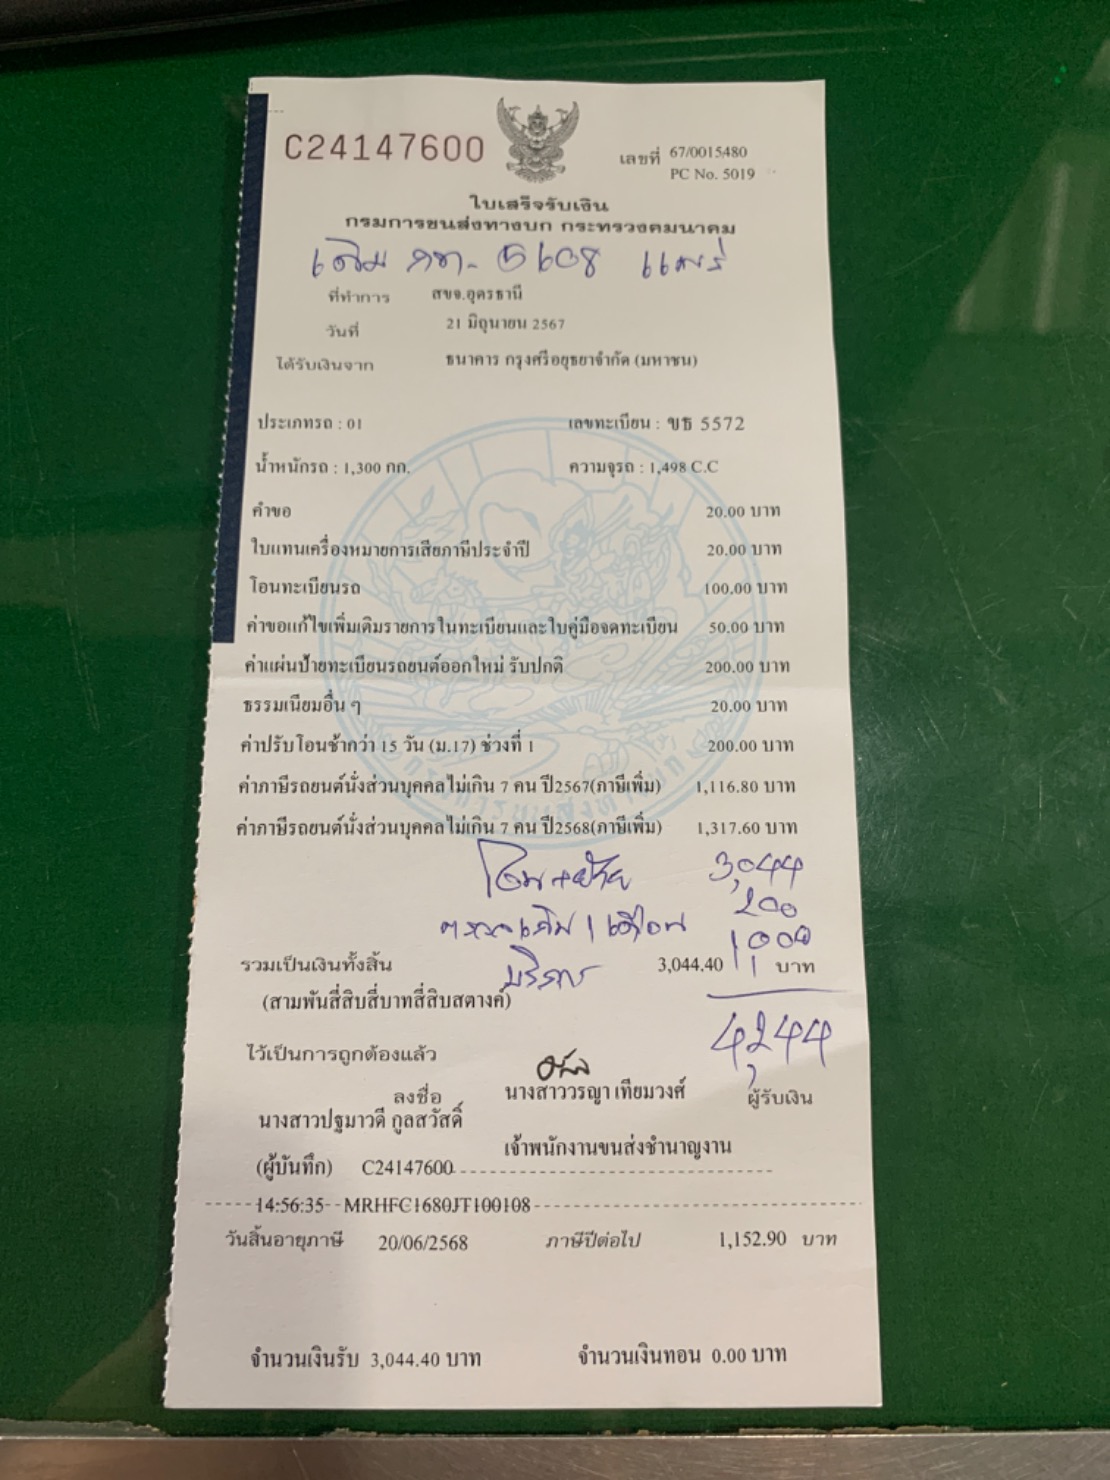 C24147600
เลขที่ 67/0015480
PC No. 5019
ใบเสร็จรับเงิน
กรมการขนส่งทางบก กระทรวงคมนาคม
เดิม กท- 5608 แพร่
ที่ทำการ สขจ.อุดรธานี
วันที่ 21 มิถุนายน 2567
ได้รับเงินจาก ธนาคาร กรุงศรีอยุธยาจำกัด (มหาชน)
ประเภทรถ : 01 เลขทะเบียน : ขธ 5572
น้ำหนักรถ : 1,300 กก. ความจุรถ : 1,498 C.C
คำขอ 20.00 บาท
ใบแทนเครื่องหมายการเสียภาษีประจำปี 20.00 บาท
โอนทะเบียนรถ 100.00 บาท
ค่าขอแก้ไขเพิ่มเติมรายการในทะเบียนและใบคู่มือจดทะเบียน 50.00 บาท
ค่าแผ่นป้ายทะเบียนรถยนต์ออกใหม่ รับปกติ 200.00 บาท
ธรรมเนียมอื่น ๆ 20.00 บาท
ค่าปรับโอนช้ากว่า 15 วัน (ม.17) ช่วงที่ 1 200.00 บาท
ค่าภาษีรถยนต์นั่งส่วนบุคคลไม่เกิน 7 คน ปี2567(ภาษีเพิ่ม) 1,116.80 บาท
ค่าภาษีรถยนต์นั่งส่วนบุคคลไม่เกิน 7 คน ปี2568(ภาษีเพิ่ม) 1,317.60 บาท
โอน+ย้าย 3,044
200
บริการ 1,000
รวมเป็นเงินทั้งสิ้น 3,044.40 บาท
(สามพันสี่สิบสี่บาทสี่สิบสตางค์)
4,244
ไว้เป็นการถูกต้องแล้ว
ลงชื่อ นางสาววรญา เทียมวงศ์ ผู้รับเงิน
นางสาวปฐมาวดี กูลสวัสดิ์
เจ้าพนักงานขนส่งชำนาญงาน
(ผู้บันทึก) C24147600
14:56:35 MRHFC1680JT100108
วันสิ้นอายุภาษี 20/06/2568 ภาษีปีต่อไป 1,152.90 บาท
จำนวนเงินรับ 3,044.40 บาท จำนวนเงินทอน 0.00 บาท